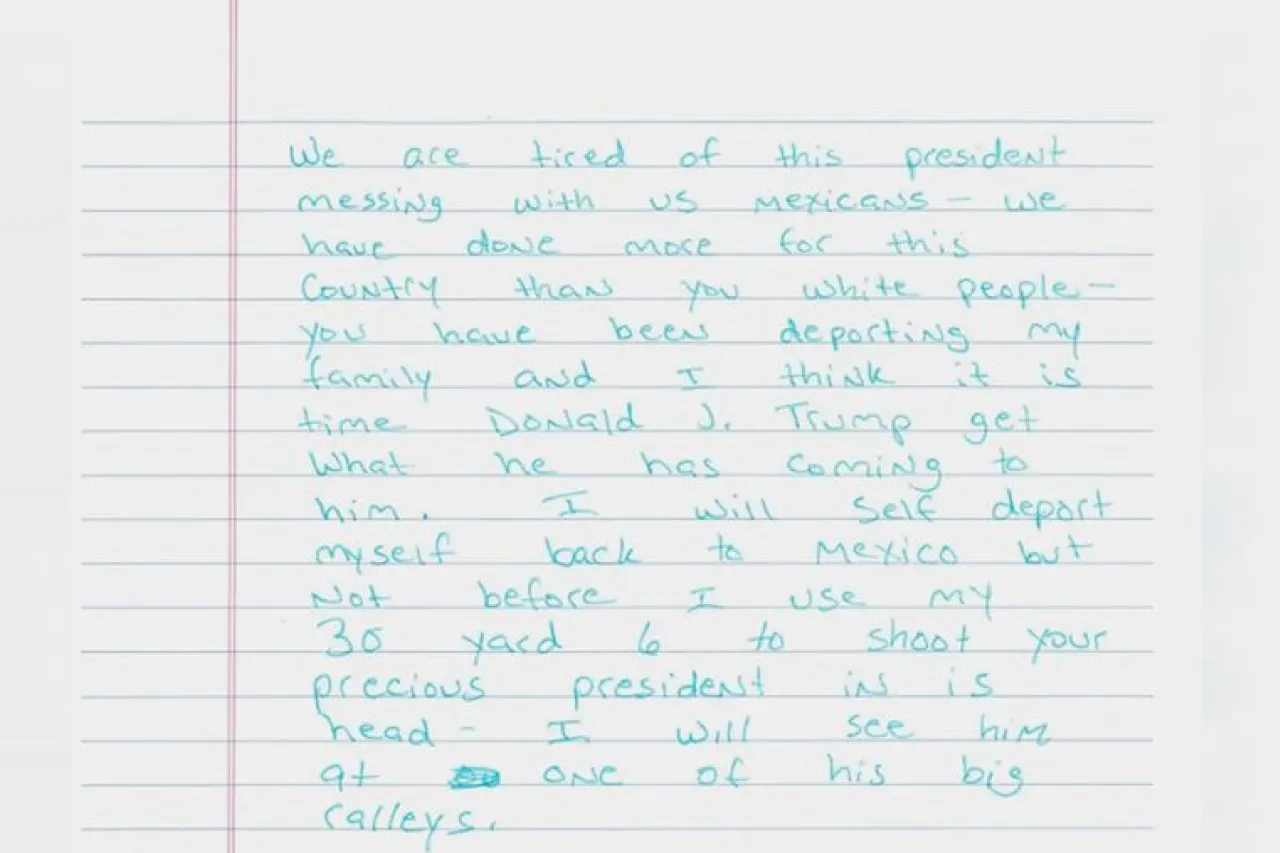 We are tired of this president
messing with us mexicans - we
have done more for this
Country than you white people -
you have been deporting my
family and I think it is
time Donald J. Trump get
what he has coming to
him. I will self deport
myself back to mexico but
not before I use my
30 yard 6 to shoot your
precious president in is
head - I will see him
at one of his big
ralleys.